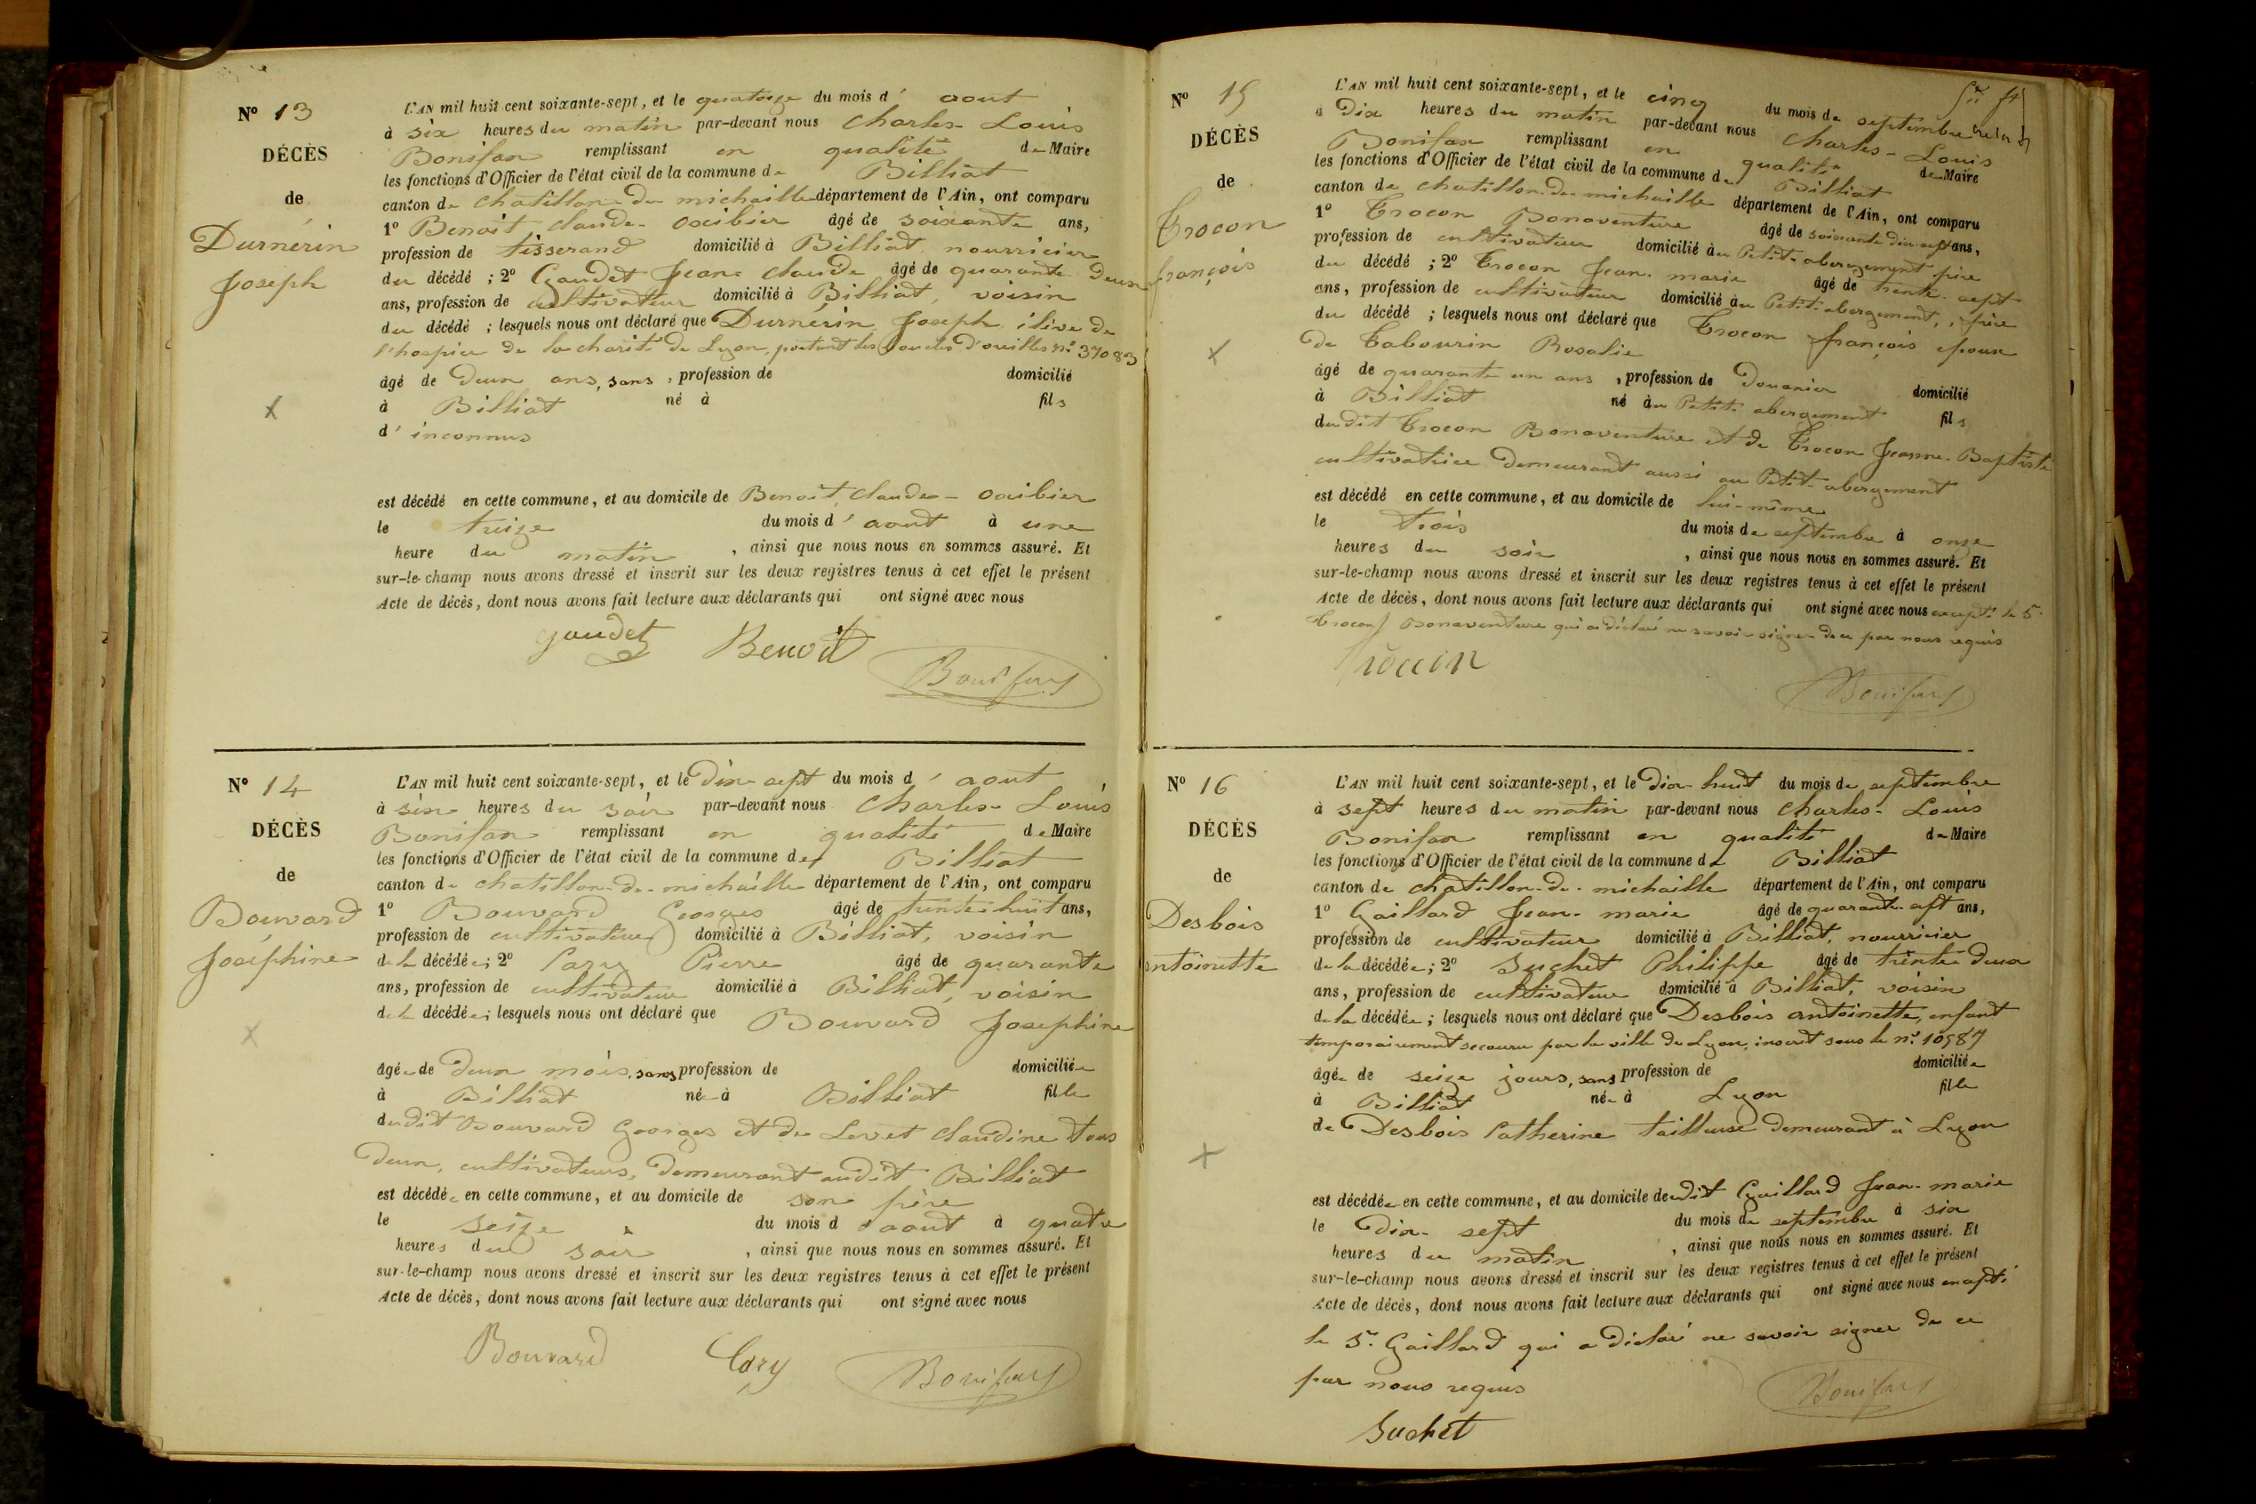 Nº 13
DÉCÈS
de
Durnérin
Joseph
L'AN mil huit cent soixante-sept, et le quatorze du mois d'aout
à six heures du matin par-devant nous Charles-Louis
Bonifax remplissant en qualité de Maire
les fonctions d'Officier de l'état civil de la commune de Billiat
canton de chatillon-de-michaille département de l'Ain, ont comparu
1º Benoit claude-oxibier âgé de soixante ans,
profession de tisserand domicilié à Billiat, nourricier
du décédé ; 2º Gaudet Jean-claude âgé de quarante deux
ans, profession de cultivateur domicilié à Billiat, voisin
du décédé ; lesquels nous ont déclaré que Durnérin Joseph élève de
l'hospice de la charité de Lyon, portant les boucles d'oreilles nº 37083
âgé de deux ans, sans, profession de domicilié
à Billiat né à fils
d'inconnus
est décédé en cette commune, et au domicile de Benoit claude-oxibier
le treize du mois d'aout à une
heure du matin, ainsi que nous nous en sommes assuré. Et
sur-le-champ nous avons dressé et inscrit sur les deux registres tenus à cet effet le présent
Acte de décès, dont nous avons fait lecture aux déclarants qui ont signé avec nous
Gaudet Benoit
Bonifax
Nº 14
DÉCÈS
de
Bouvard
Joséphine
L'AN mil huit cent soixante-sept, et le dix-sept du mois d'aout
à six heures du soir par-devant nous Charles-Louis
Bonifax remplissant en qualité de Maire
les fonctions d'Officier de l'état civil de la commune de Billiat
canton de chatillon-de-michaille département de l'Ain, ont comparu
1º Bouvard Georges âgé de trente-huit ans,
profession de cultivateur domicilié à Billiat, voisin
de la décédée; 2º Cary Pierre âgé de quarante
ans, profession de cultivateur domicilié à Billiat, voisin
de la décédée; lesquels nous ont déclaré que Bouvard Josephine
âgée de deux mois, sans profession de domiciliée
à Billiat née à Billiat fille
dudit Bouvard Georges et de Levet claudine tous
deux, cultivateurs, demeurant audit Billiat
est décédée en cette commune, et au domicile de son père
le seize du mois d'aout à quatre
heures du soir, ainsi que nous nous en sommes assuré. Et
sur-le-champ nous avons dressé et inscrit sur les deux registres tenus à cet effet le présent
Acte de décès, dont nous avons fait lecture aux déclarants qui ont signé avec nous
Bouvard Cary Bonifax
Nº 15
DÉCÈS
de
Trocon
françois
L'AN mil huit cent soixante-sept, et le cinq du mois de septembre
à dix heures du matin par-devant nous Charles-Louis
Bonifax remplissant en qualité de Maire
les fonctions d'Officier de l'état civil de la commune de Billiat
canton de chatillon-de-michaille département de l'Ain, ont comparu
1º Trocon Bonaventure âgé de soixante dix sept ans,
profession de cultivateur domicilié au Petit-abergement père
du décédé ; 2º Trocon Jean-marie âgé de trente-sept
ans, profession de cultivateur domicilié au Petit-abergement, frère
du décédé ; lesquels nous ont déclaré que Trocon françois époux
de Tabourin Rosalie
âgé de quarante un ans, profession de douanier domicilié
à Billiat né au Petit-abergement fils
dudit Trocon Bonaventure et de Trocon Jeanne-Baptiste
cultivatrice demeurant aussi au Petit-abergement
est décédé en cette commune, et au domicile de lui-même
le trois du mois de septembre à onze
heures du soir, ainsi que nous nous en sommes assuré. Et
sur-le-champ nous avons dressé et inscrit sur les deux registres tenus à cet effet le présent
Acte de décès, dont nous avons fait lecture aux déclarants qui ont signé avec nous excepté le Sr
Trocon Bonaventure qui a déclaré ne savoir signer de ce par nous requis
Trocon
Bonifax
Nº 16
DÉCÈS
de
Desbois
antoinette
L'AN mil huit cent soixante-sept, et le dix-huit du mois de septembre
à sept heures du matin par-devant nous Charles-Louis
Bonifax remplissant en qualité de Maire
les fonctions d'Officier de l'état civil de la commune de Billiat
canton de chatillon-de-michaille département de l'Ain, ont comparu
1º Gaillard Jean-marie âgé de quarante-sept ans,
profession de cultivateur domicilié à Billiat, nourricier
de la décédée; 2º Suchet Philippe âgé de trente deux
ans, profession de cultivateur domicilié à Billiat, voisin
de la décédée; lesquels nous ont déclaré que Desbois antoinette, enfant
temporairement secouru par la ville de Lyon, inscrit sous le nº 10587
âgée de seize jours, sans profession de domiciliée
à Billiat née à Lyon fille
de Desbois Catherine tailleuse demeurant à Lyon
est décédée en cette commune, et au domicile dudit Gaillard Jean-marie
le dix-sept du mois de septembre à six
heures du matin, ainsi que nous nous en sommes assuré. Et
sur-le-champ nous avons dressé et inscrit sur les deux registres tenus à cet effet le présent
Acte de décès, dont nous avons fait lecture aux déclarants qui ont signé avec nous excepté
le Sr Gaillard qui a déclaré ne savoir signer de ce
par nous requis
Bonifax
Suchet